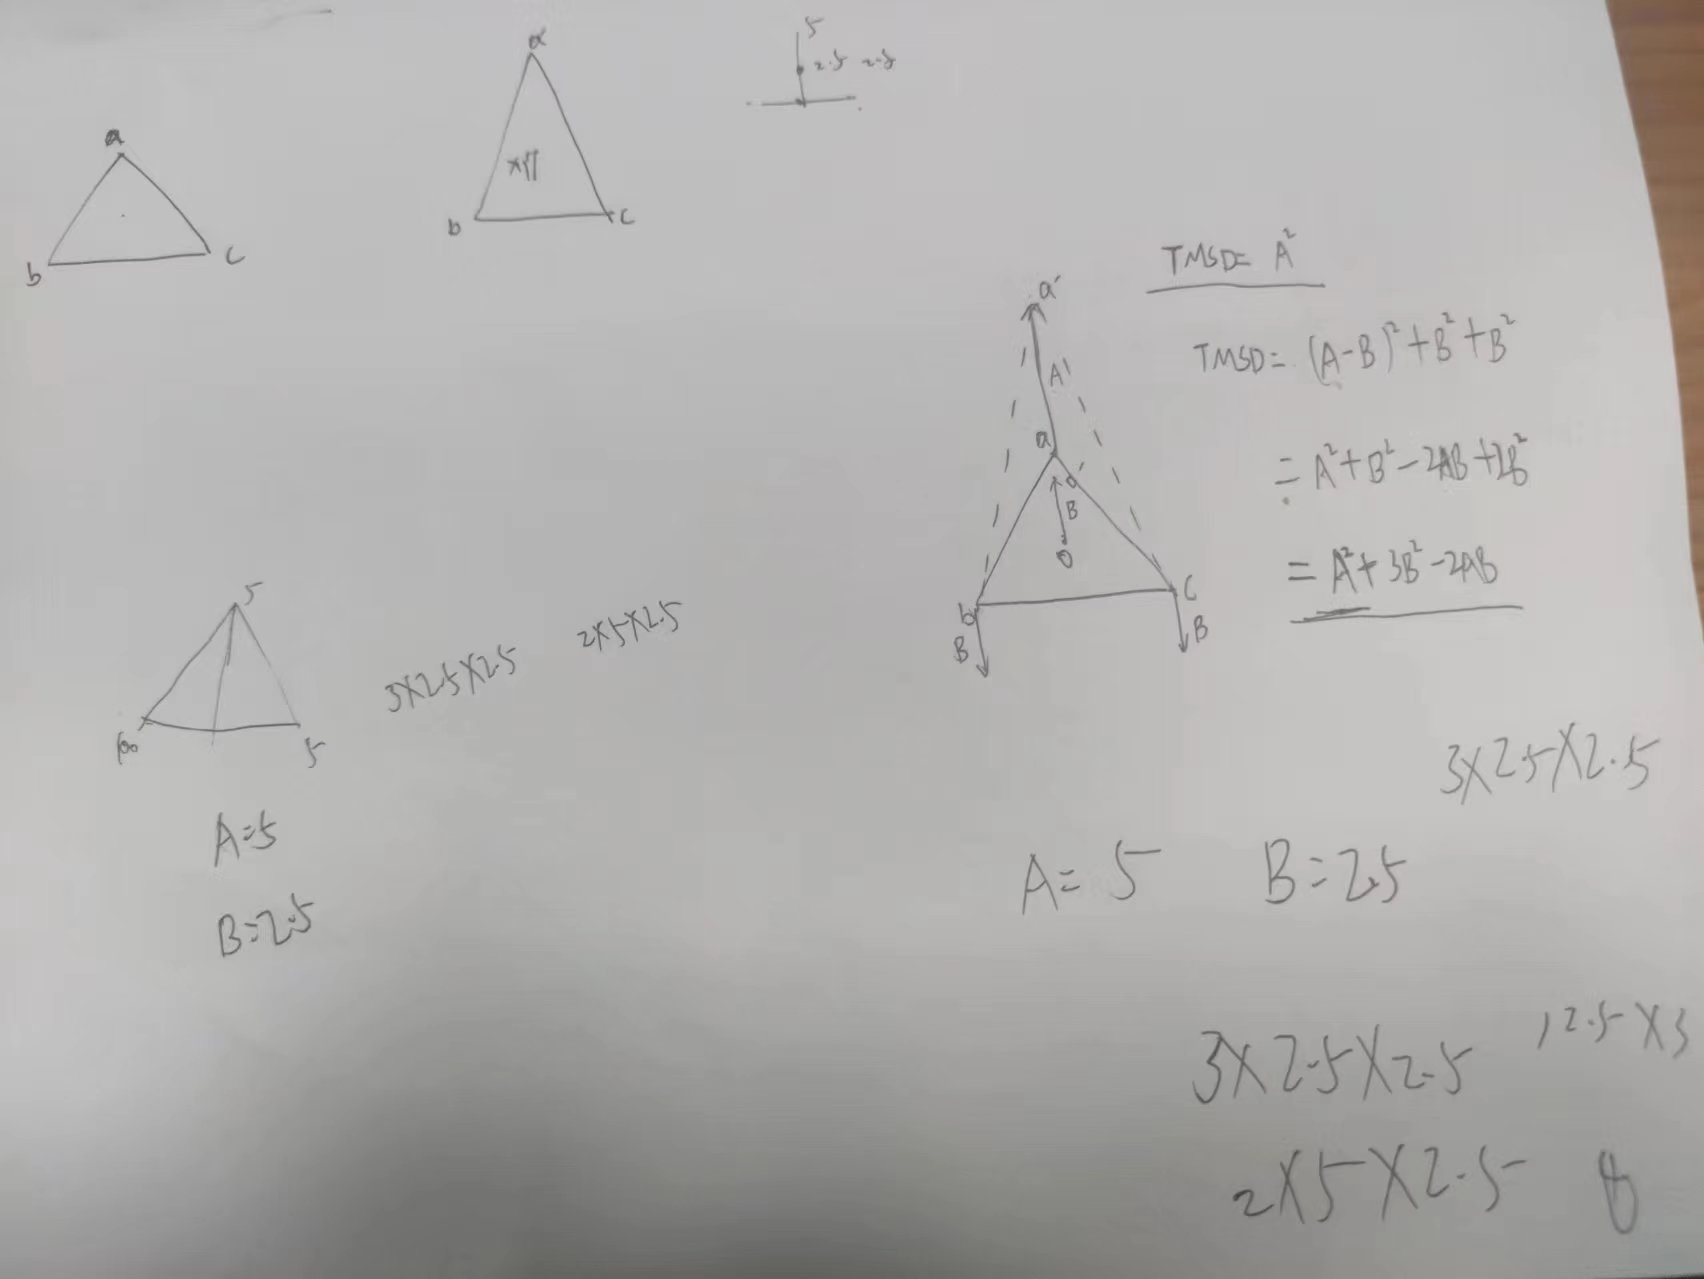 a
b
c
a'
b
c
5
2.5 2.5
TMSD= A²
TMSD= (A-B)²+B²+B²
= A²+B²-2AB+2B²
= A²+3B²-2AB
a'
A
a
o'
B
O
b
c
B
B
5
5
3X2.5X2.5
2X5X2.5
A=5
B=2.5
3X2.5X2.5
A= 5
B=2.5
3X2.5X2.5
12.5X3
2X5X2.5